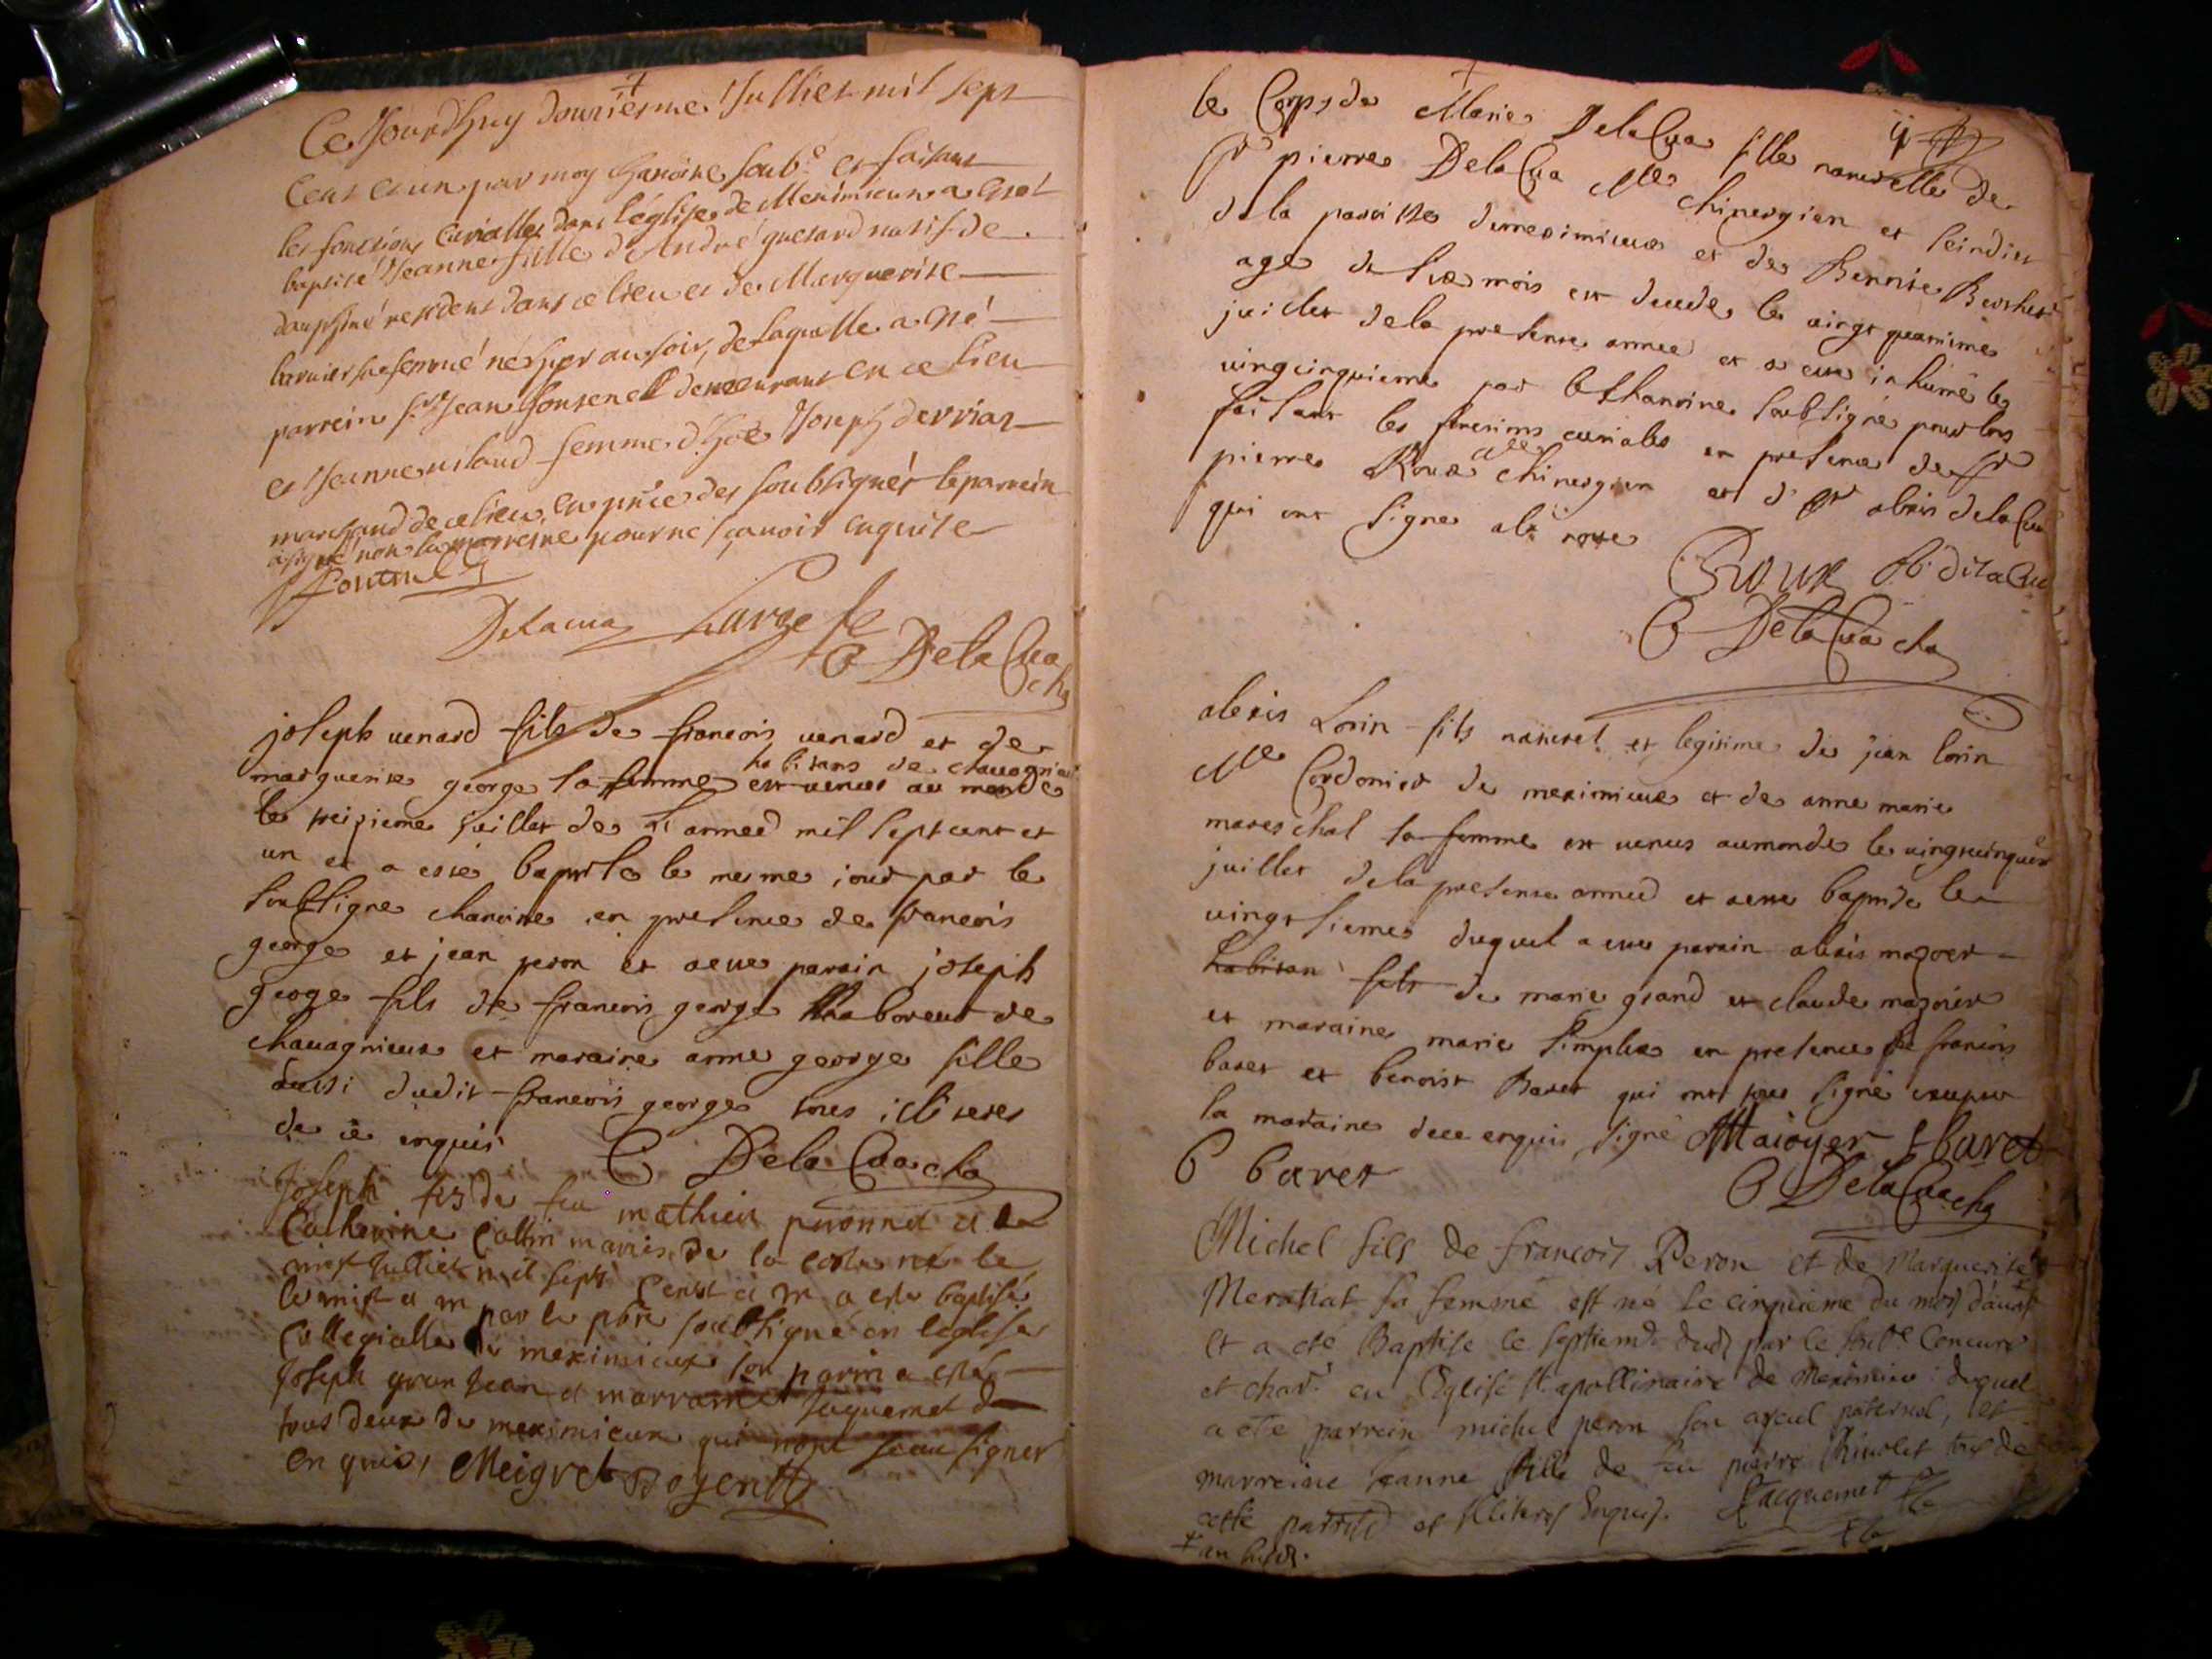 Ce Jourdhuy douziesme Juilliet mil sept
cent et un par moy chanoine soub.é et faisant
les fonctions curialles dans l'église de Meximieux a esté
baptisé Jeanne fille d'André guetard natif de
dauphiné resident dans ce lieu et de Marguerite
sa femme né hyer au soir, de laquelle a esté
parrein s.r Jean fontenell demeurant en ce lieu
et Jeanne uilaud femme d'ho.e Joseph derriat
marchand de ce lieu, en pñce des soubsignés le parrein
a signé non la marreine pour ne sçauoir enquise
fontenell
Delacua Large
C DelaCua cha
joseph uenard fils de francois uenard et de
marguerite george sa femme habitans de chauagnieu
est uenus au monde
le treizieme juillet de L'anneé mil sept cent et
un et a esté baptisé le mesme iour par le
soubsigne chanoine en presence de francois
george et jean peron et a eue parain joseph
geoge fils de francois george laboreur de
chauagnieux et maraine anne george fille
aussi dudit francois george tous iliteres
de ce enquis C DelaCua cha
Joseph fis de feu mathieu peronnet et de
Catherine Collin maries de la coste né le
uint Julliet mil sept cent et un a este baptisé
le uint et un par le pbre soubsigné en leglise
Collegialle de meximieux son parin a este
Joseph gran Jean et marraine Juquemet
tous deux de meximieux qui nont sceu signer
enquis, Meigret
le Corps de Marie DelaCua fille naturelle de
Sr pierre DelaCua Mre chirurgien et scindict
de la paroisse de meximieux et de Benoite Berthet
age de six mois est decede le uingt quatrime
juillet de la presente anneé et a eue inhumé le
uingcinquieme par le chanoine soubsigné pour lors
faisant les fonctions curiales en presence de Sr
pierre Roux Mre chirurgien et d Sr alexis delaCua
qui ont signe
Roux
C DelaCua cha
alexis Lorin fils naturel et legitime de jean lorin
Mre Cordonier de meximieux et de anne marie
mareschal sa femme est uenus au monde le uingtcinquieme
juillet de la presente anneé et a eue baptisé le
uingt sixieme duquel a eue parain alexis mazoier
habitan fils de marie grand et claude mazoier
et maraine marie simplex en presence de francois
baret et benoist Baret qui ont tous signé excepté
la maraine de ce enquis signé Maioyer f baret
B baret
C DelaCua cha
Michel fils de francois Peron et de Marguerite
Merattat sa femme est né le cinquieme du mois d'aust
et a eté Baptisé le septiemé dudt par le soub.é Concuré
et chan.e en l'Eglise st. apollinaire de Meximieux duquel
a eté parrein michel peron son ayeul paternel, et
marreine Jeanne fille de feu pierre Riuolet tous de
cette parroisse et illiteres Enquis. Jacquemet